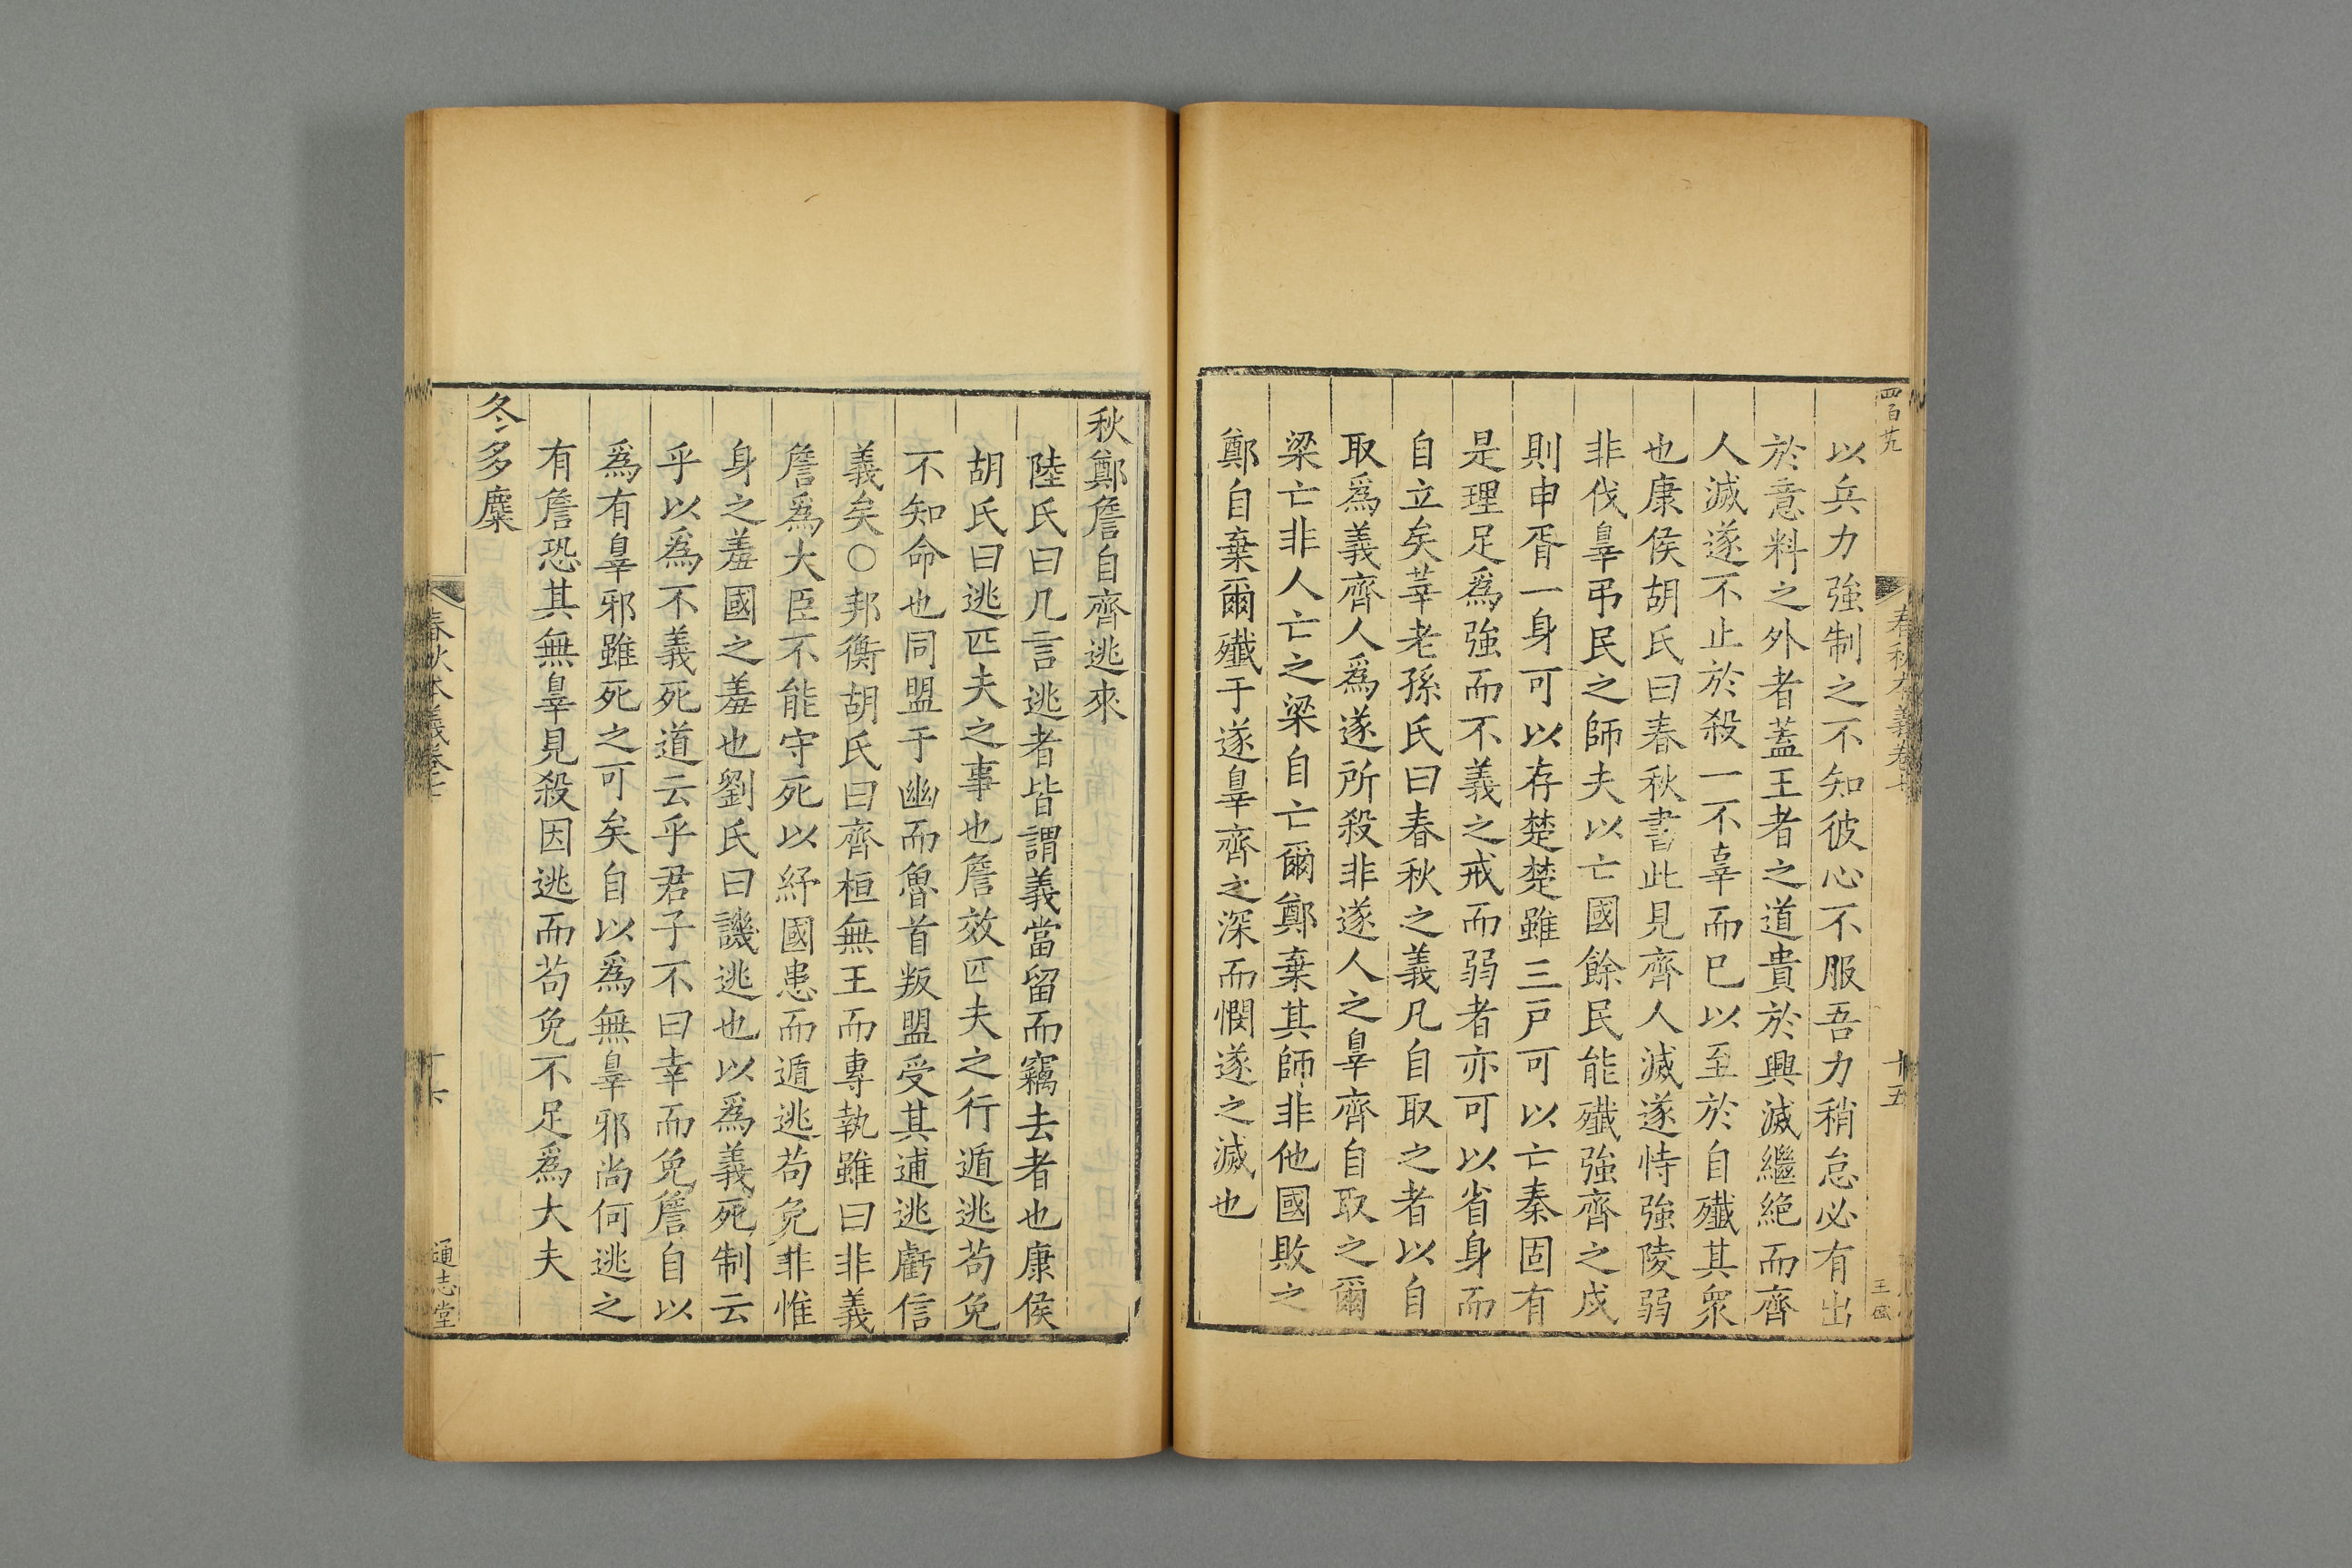 四百廿九
春秋本義卷七
十五
以兵力強制之不知彼心不服吾力稍怠必有出
於意料之外者蓋王者之道貴於興滅繼絶而齊
人滅遂不止於殺一不辜而巳以至於自殱其衆
也康侯胡氏曰春秋書此見齊人滅遂恃強陵弱
非伐辠弔民之師夫以亡國餘民能殱強齊之戍
則申胥一身可以存楚楚雖三戸可以亡秦固有
是理足爲強而不義之戒而弱者亦可以省身而
自立矣莘老孫氏曰春秋之義凡自取之者以自
取爲義齊人爲遂所殺非遂人之辠齊自取之爾
梁亡非人亡之梁自亡爾鄭棄其師非他國敗之
鄭自棄爾殱于遂辠齊之深而憫遂之滅也
秋鄭詹自齊逃來
陸氏曰凡言逃者皆謂義當留而竊去者也康侯
胡氏曰逃匹夫之事也詹效匹夫之行遁逃苟免
不知命也同盟于幽而魯首叛盟受其逋逃虧信
義矣○邦衡胡氏曰齊桓無王而專執雖曰非義
詹爲大臣不能守死以紓國患而遁逃苟免非惟
身之羞國之羞也劉氏曰譏逃也以爲義死制云
乎以爲不義死道云乎君子不曰幸而免詹自以
爲有辠邪雖死之可矣自以爲無辠邪尚何逃之
有詹恐其無辠見殺因逃而苟免不足爲大夫
冬多麋
春秋本義卷七
十六
通志堂